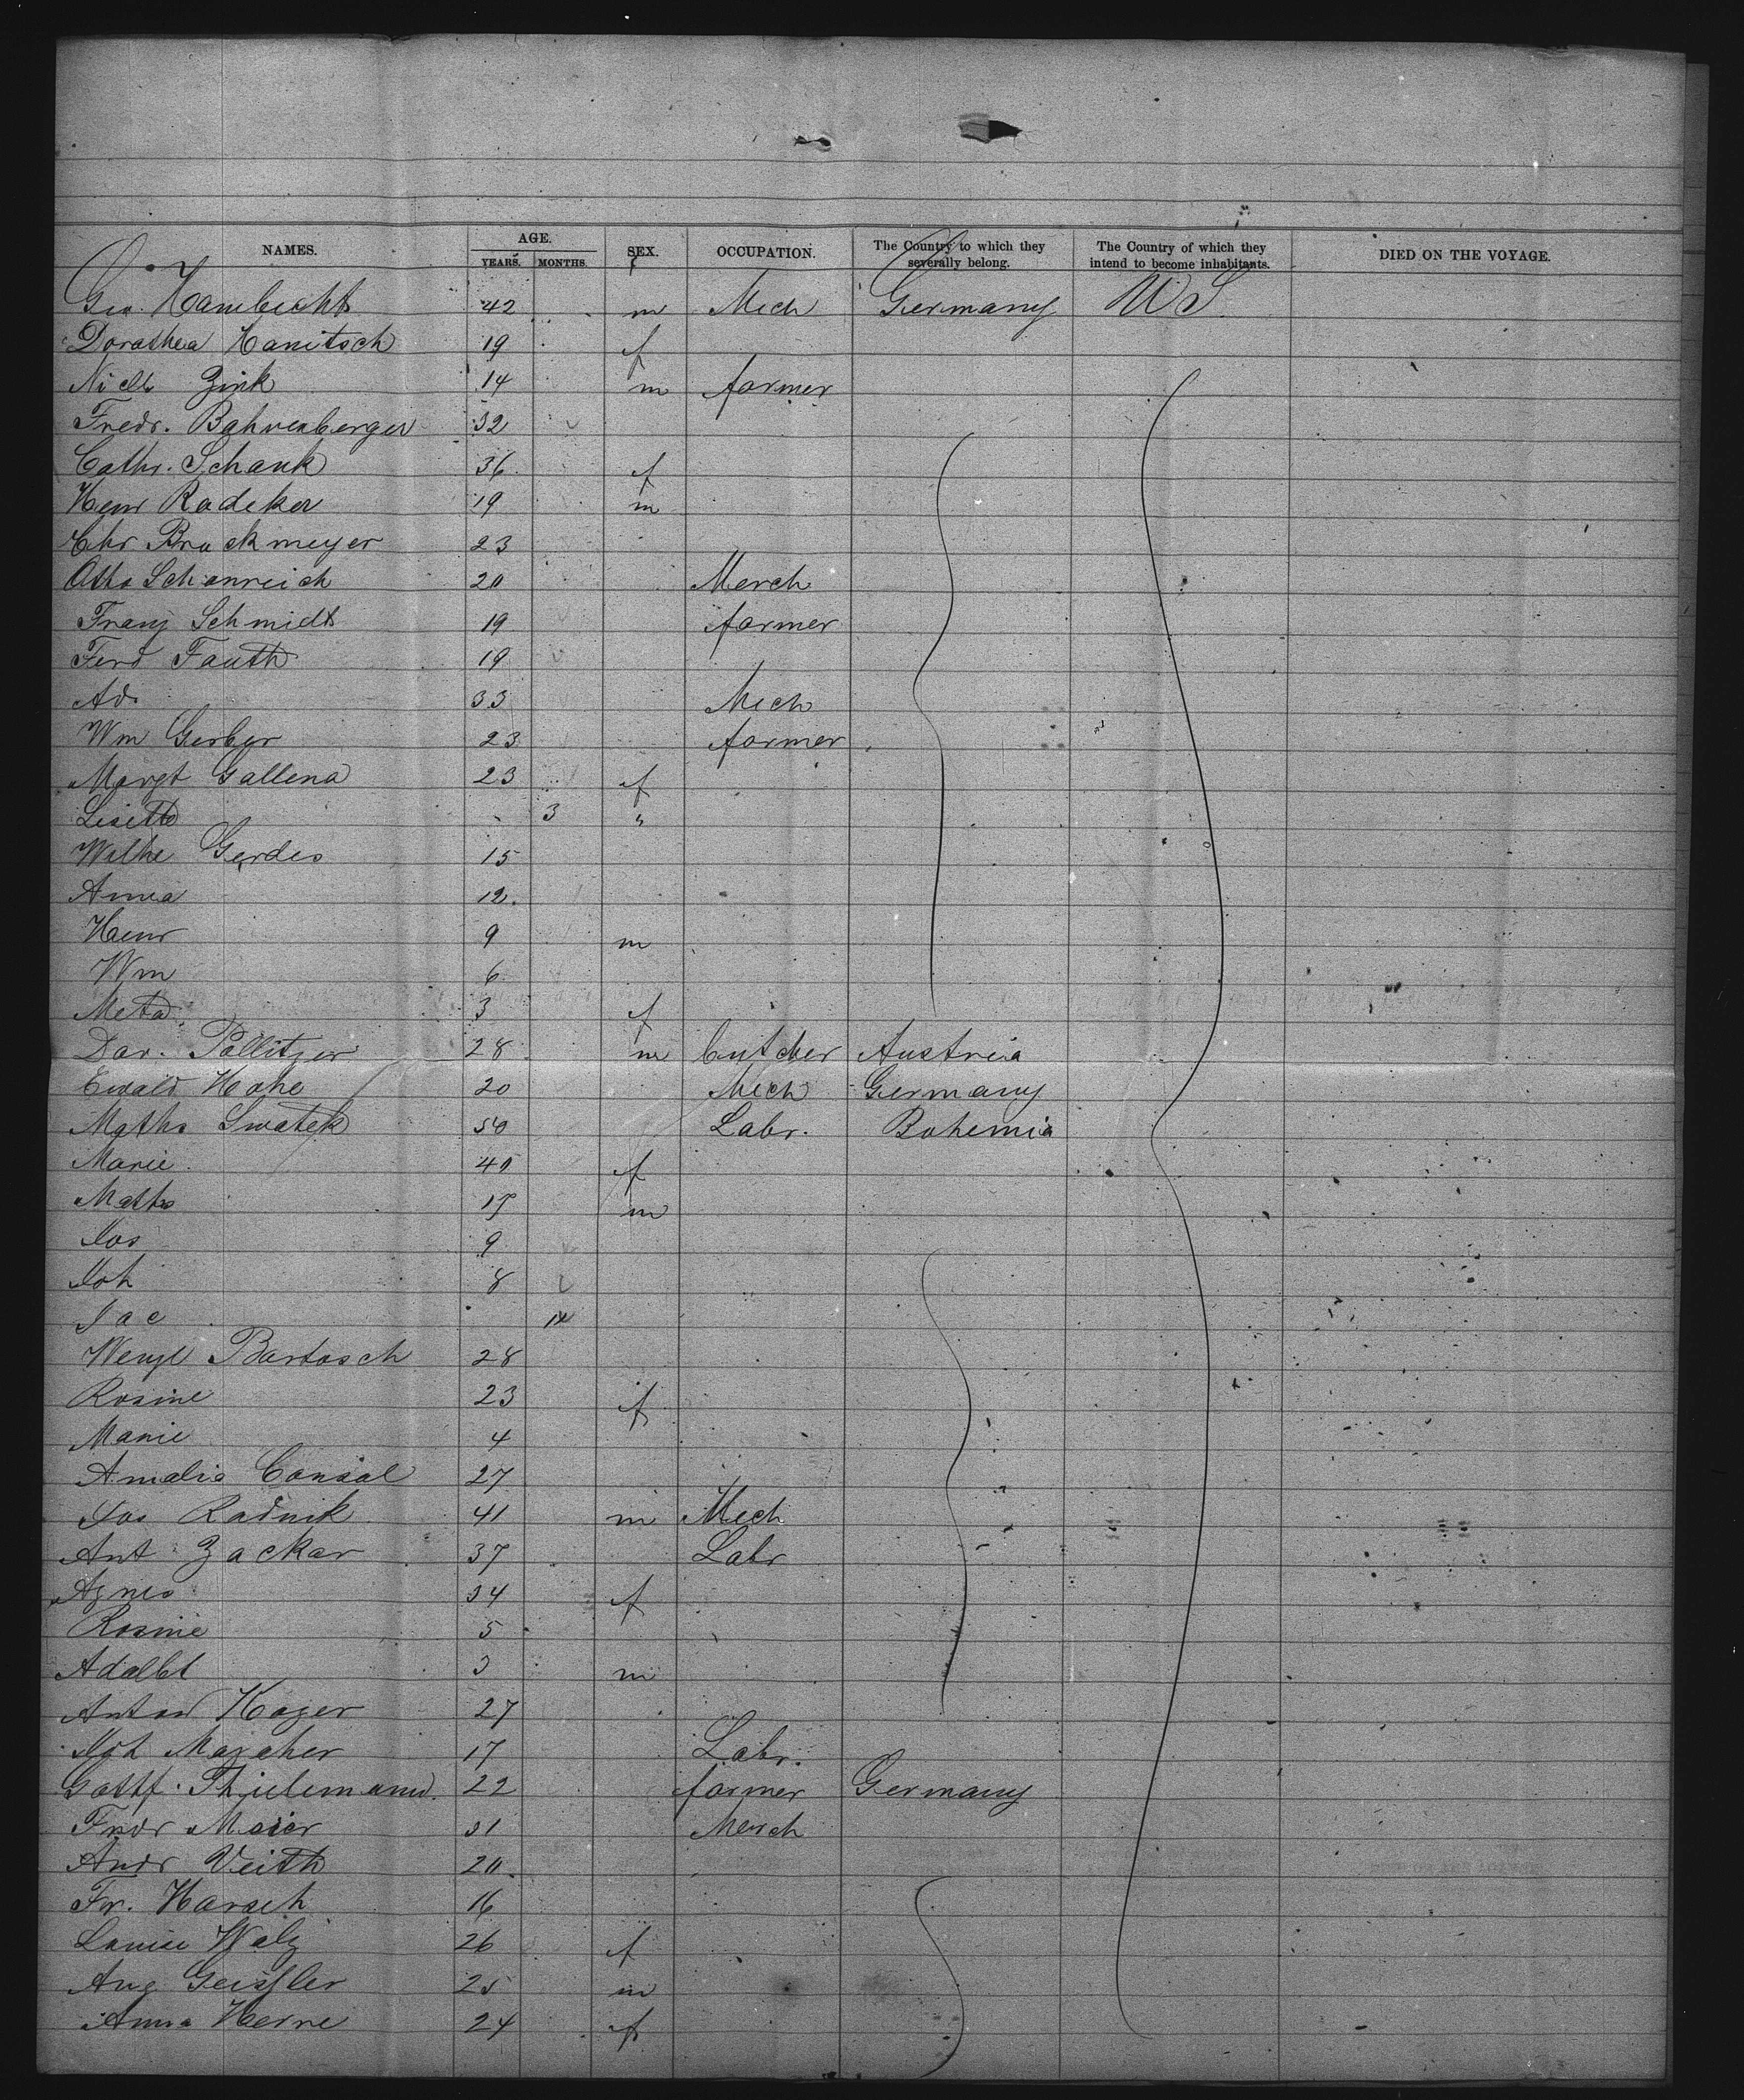 NAMES. AGE. YEARS. MONTHS. SEX. OCCUPATION. The Country to which they severally belong. The Country of which they intend to become inhabitants. DIED ON THE VOYAGE.
Geo. Hambecht 42 m Mech Germany US
Dorothea Hanitsch 19 f
Nicl Zink 14 m farmer
Fredr. Bahrenberger 32
Cathr. Schank 36 f
Henr Radeker 19 m
Chr Brackmeyer 23
Otto Schonreich 20 Merch
Franz Schmidt 19 farmer
Ferd Fauth 19
Ad. 33 Mech
Wm Gerber 23 farmer
Margt Gallena 23 f
Lisette 3 "
Wilhe Gerdes 15
Anna 12
Henr 9 m
Wm 6
Meta 3 f
Dav. Pollitzer 28 m butcher Austria
Ewald Hohe 20 Mech Germany
Maths Swatek 50 Labr. Bohemia
Marie f
Maths 17 m
Jos 9
Joh 8
Jac
Wenzl Bartosch 28
Rosine 23 f
Marie 4
Amalia Consal 27
Jos Radnik 41 m Mech
Ant Zackar 37 Labr
Agnes 34 f
Rosine 5
Adalbt 3 m
Anton Kozer 27
Joh Mazaher 17 Labr.
Gottf. Thielemann 22 farmer Germany
Fredr Maier 31 Merch
Andr Veith 20
Fr. Harsch 16
Louise Walz 26 f
Aug Geissler 25 m
Anna Herne 24 f